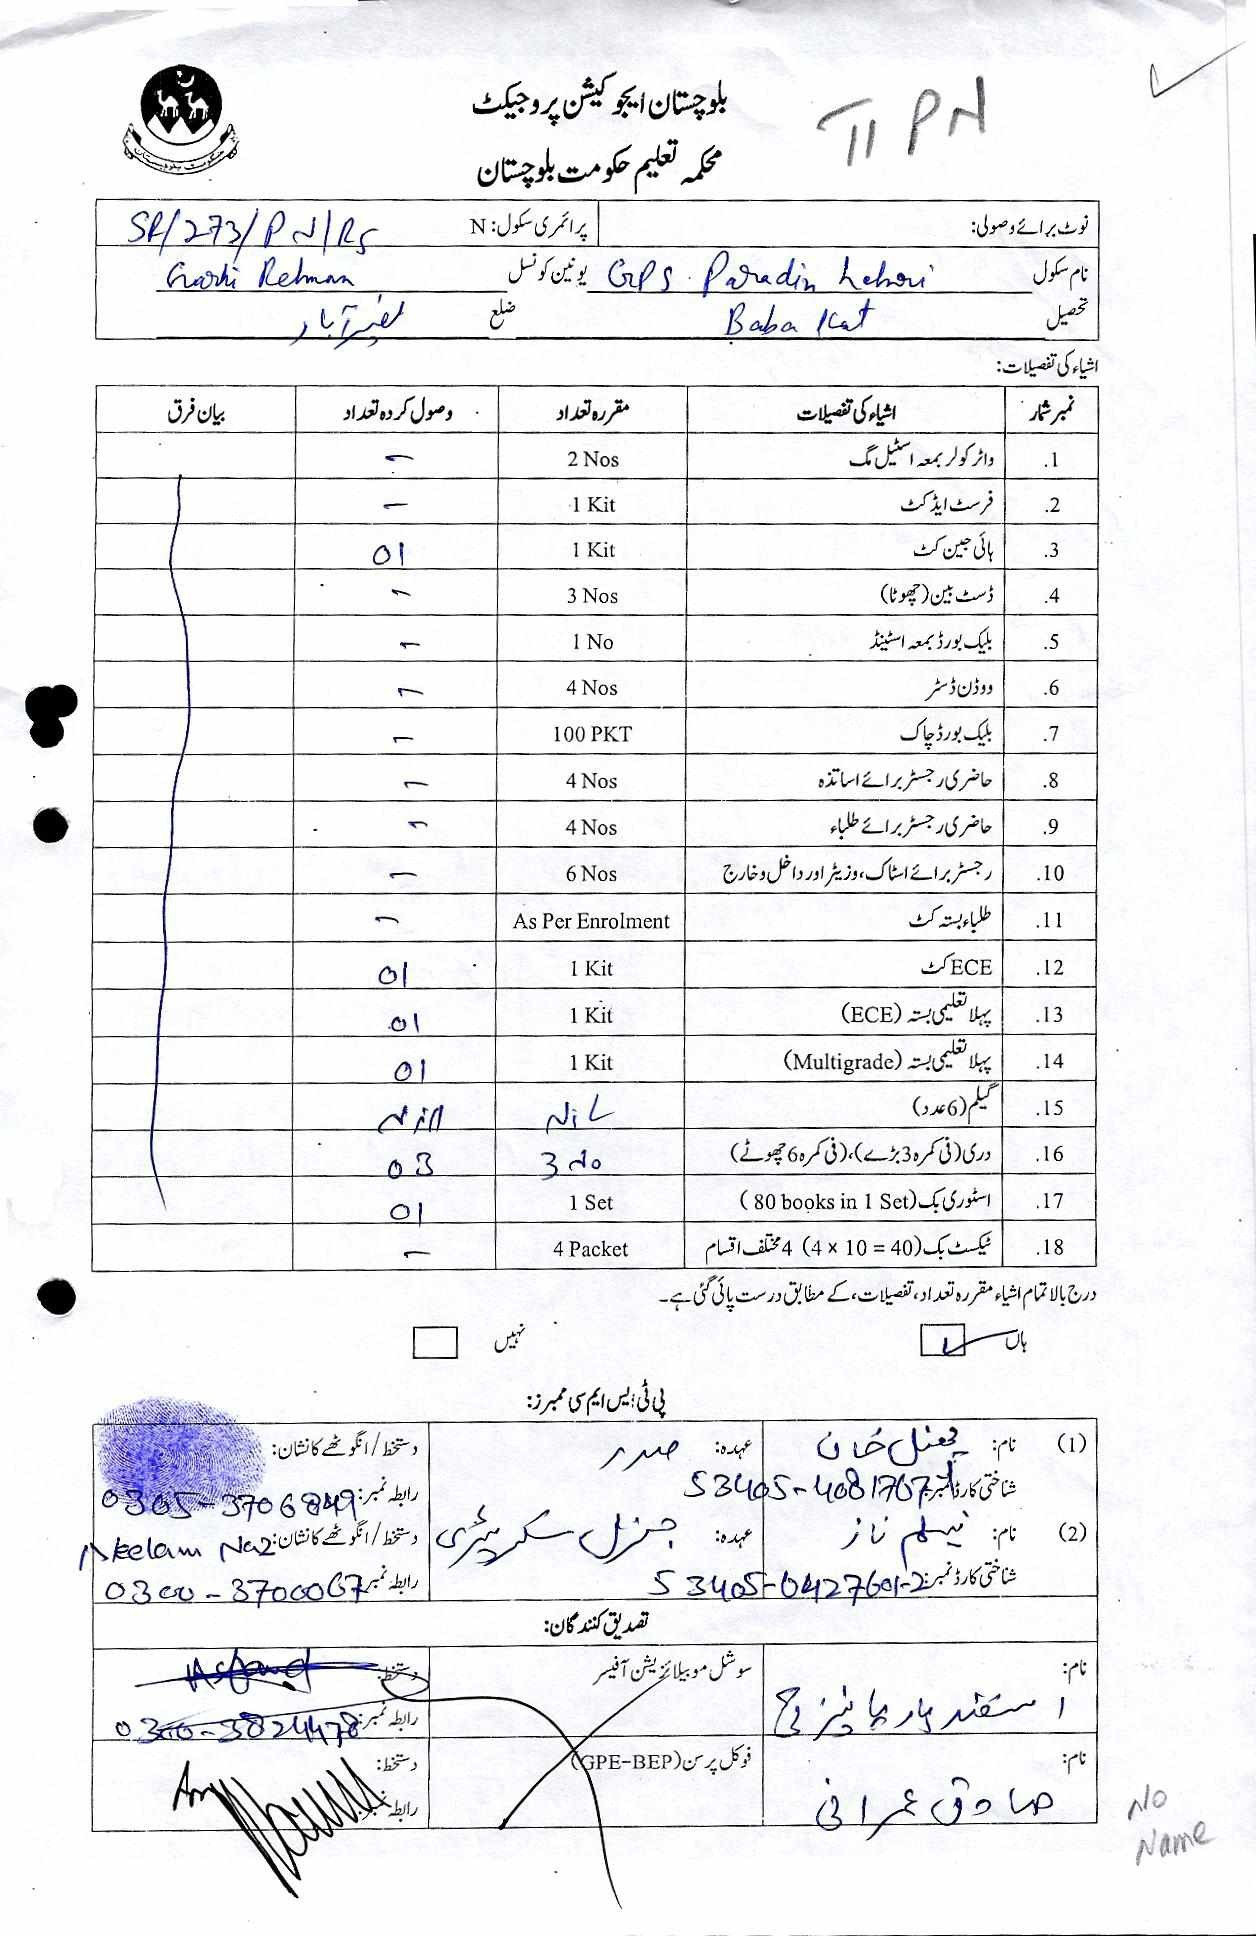 بلوچستان ایجوکیشن پروجیکٹ
II PN
محکمہ تعلیم حکومت بلوچستان
نوٹ برائے وصولی: پرائمری سکول: N SP/273/PN/RS
نام سکول GPS Paradin Lehori یونین کونسل Garhi Rehman
تحصیل Baba Kot ضلع نصیر آباد
اشیاء کی تفصیلات:
نمبر شمار اشیاء کی تفصیلات مقررہ تعداد وصول کردہ تعداد بیان فرق
1. واٹر کولر بمعہ اسٹیل مگ 2 Nos –
2. فرسٹ ایڈ کٹ 1 Kit –
3. ہائی جین کٹ 1 Kit 01
4. ڈسٹ بین (چھوٹا) 3 Nos –
5. بلیک بورڈ بمعہ اسٹینڈ 1 No –
6. ووڈن ڈسٹر 4 Nos –
7. بلیک بورڈ چاک 100 PKT –
8. حاضری رجسٹر برائے اساتذہ 4 Nos –
9. حاضری رجسٹر برائے طلباء 4 Nos –
10. رجسٹر برائے اسٹاک، وزیٹر اور داخل و خارج 6 Nos –
11. طلباء بستہ کٹ As Per Enrolment –
12. ECE کٹ 1 Kit 01
13. پہلا تعلیمی بستہ (ECE) 1 Kit 01
14. پہلا تعلیمی بستہ (Multigrade) 1 Kit 01
15. گیلم (6 عدد) NiL Nill
16. دری (فی کمرہ 3 بڑے)، (فی کمرہ 6 چھوٹے) 3 No 03
17. اسٹوری بک (80 books in 1 Set) 1 Set 01
18. ٹیکسٹ بک (4 x 10 = 40) 4 مختلف اقسام 4 Packet –
درج بالا تمام اشیاء مقررہ تعداد، تفصیلات، کے مطابق درست پائی گئی ہے۔
ہاں نہیں
پی ٹی ایس ایم سی ممبرز:
(1) نام: عہدہ: صدر دستخط / انگوٹھے کا نشان:
شناختی کارڈ نمبر: رابطہ نمبر: 0305-3706849
(2) نام: نیلم ناز عہدہ: جنرل سکریٹری دستخط / انگوٹھے کا نشان: Neelam Naz
شناختی کارڈ نمبر: 53405-0427601-2 رابطہ نمبر: 0300-3700067
تصدیق کنندگان:
نام: سوشل موبیلائزیشن آفیسر دستخط:
اسفند یار رابطہ نمبر: 0300-3824478
نام: فوکل پرسن (GPE-BEP) دستخط:
صادق عمرانی رابطہ نمبر:
No
Name